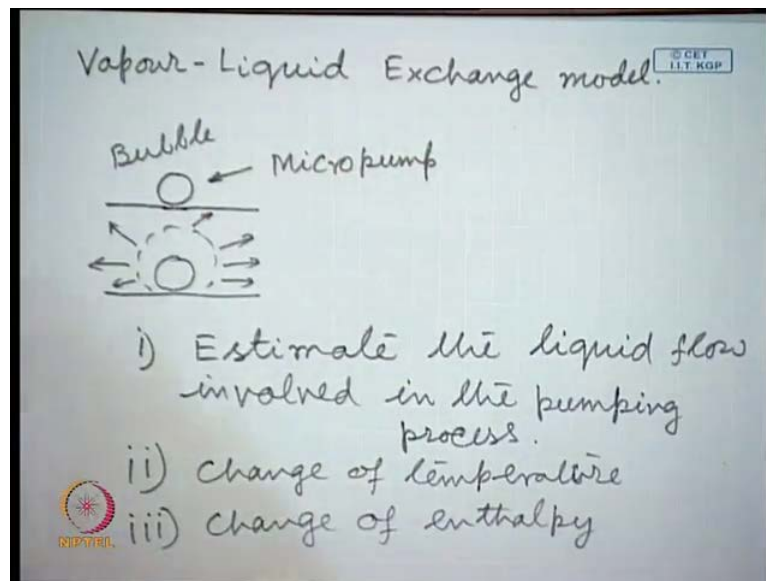 Vapour-Liquid Exchange model.
© CET
I.I.T. KGP
Bubble
Micropump
i) Estimate the liquid flow
involved in the pumping
process.
ii) change of temperature
iii) change of enthalpy
NPTEL